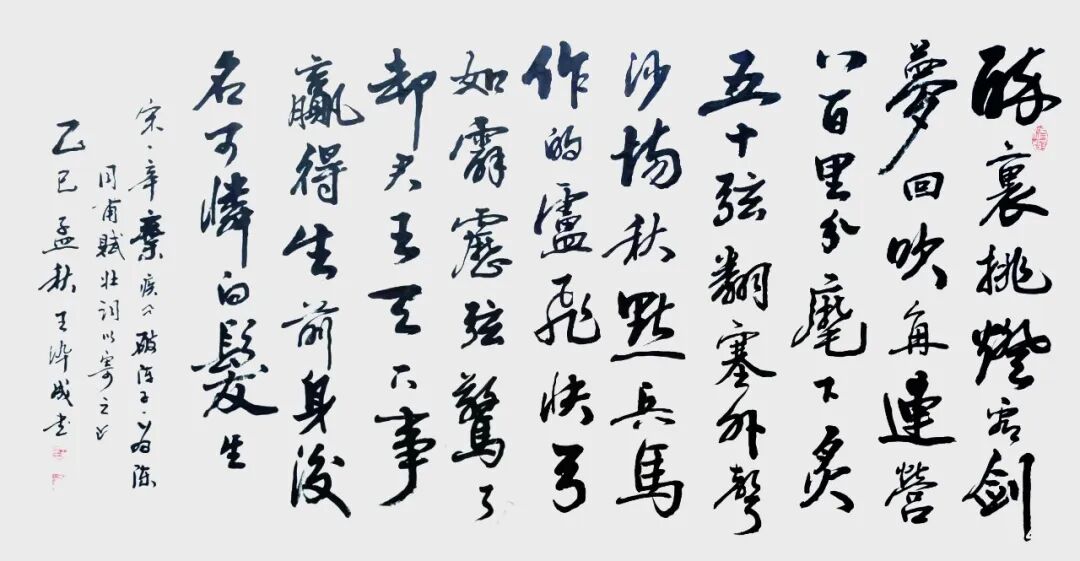 醉裏挑燈看劍
夢回吹角連營
八百里分麾下炙
五十弦翻塞外聲
沙場秋點兵馬
作的盧飛快弓
如霹靂弦驚了
却君王天下事
贏得生前身後
名可憐白髮生
宋·辛棄疾《破阵子·为陈
同甫賦壮词以寄之》
乙巳孟秋王成书